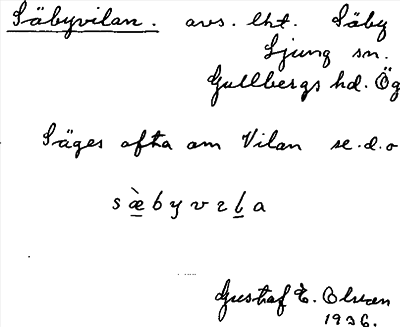 Säbyvilan. avs. lht. Säby
Ljung sn.
Gullbergs hd. Ög
Säges ofta om Vilan se.d.o
sæ̀byvɩla
Gustaf E. Olsson
1936.